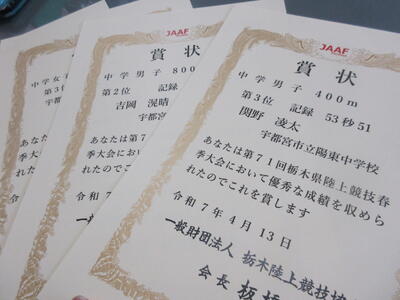 JAAF
賞 状
中 学 女 子
第 3 位
宇都宮
JAAF
賞 状
中 学 男 子 800
第 2 位 記録
吉岡 滉晴
宇都宮
あなたは第71
季大会におい
れたのでこれ
令 和 7 年
一般財団
会
JAAF
賞 状
中 学 男 子 400m
第 3 位 記録 53秒51
関野 凌太
宇都宮市立陽東中学校
あなたは第71回栃木県陸上競技春
季大会において優秀な成績を収めら
れたのでこれを賞します
令 和 7 年 4 月 13 日
一般財団法人 栃木陸上競技
会 長 板